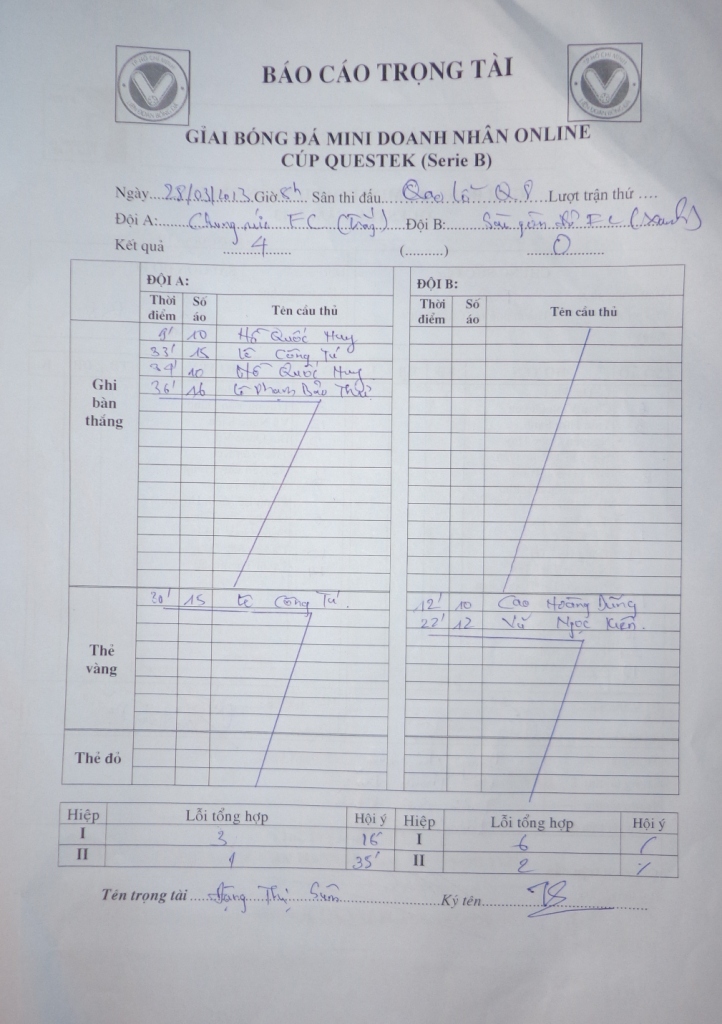 BÁO CÁO TRỌNG TÀI
GIẢI BÓNG ĐÁ MINI DOANH NHÂN ONLINE
CÚP QUESTEK (Serie B)
Ngày 28/03/2013 Giờ 8h Sân thi đấu Q8 Lượt trận thứ ....
Đội A: FC (Trắng) Đội B: Sài gòn FC (Xanh)
Kết quả 4 (..........) 0
ĐỘI A: ĐỘI B:
Thời điểm Số áo Tên cầu thủ Thời điểm Số áo Tên cầu thủ
Ghi bàn thắng
8' 10 Hồ Quốc Huy
33' 15 Lê Công Tú
34' 10 Hồ Quốc Huy
36' 16 Lê Phạm Bảo
Thẻ vàng
30' 15 Lê Công Tú. 12' 10 Cao Hoàng Dũng
22' 12 Vũ Ngọc Kiên.
Thẻ đỏ
Hiệp Lỗi tổng hợp Hội ý Hiệp Lỗi tổng hợp Hội ý
I 3 16' I 6
II 1 35' II 2
Tên trọng tài Đặng Thị Ký tên